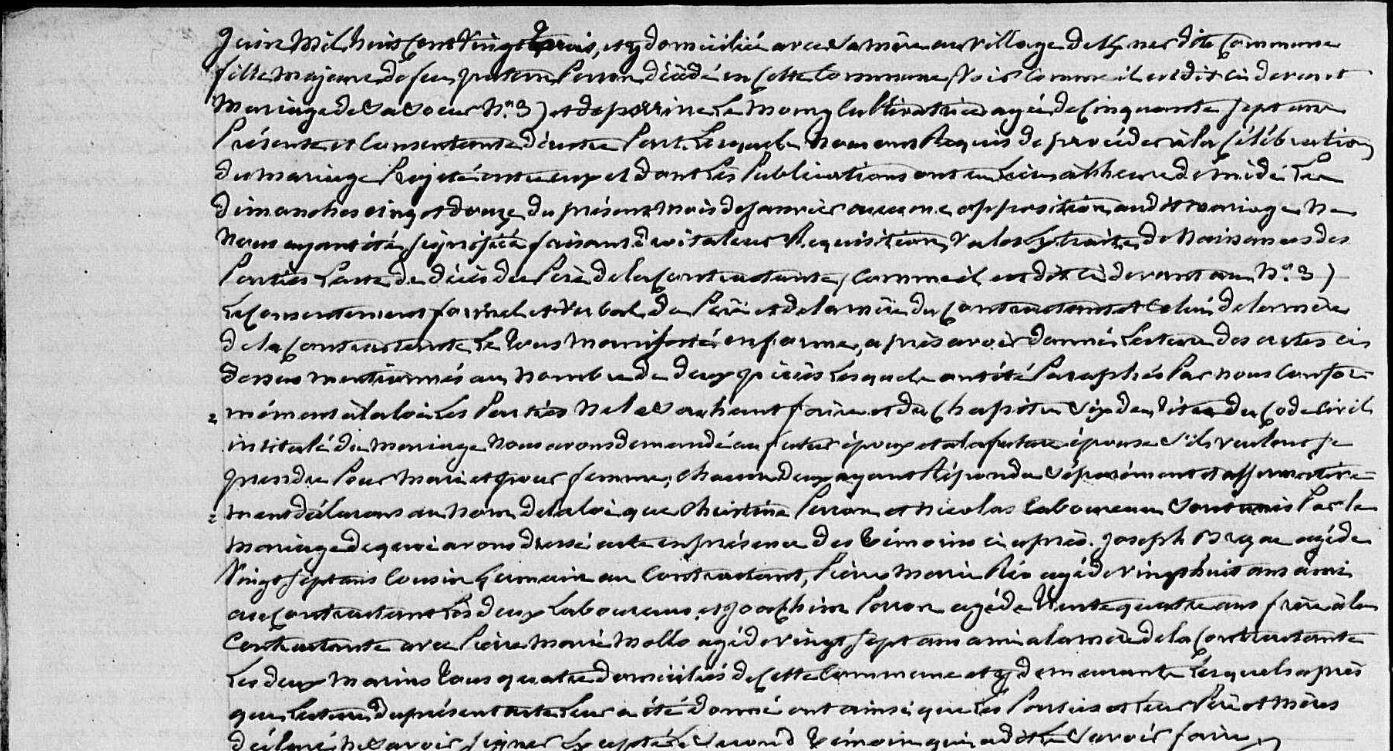 Juin Mil huit cent vingt trois, et y domicilié avec sa mère au village de dite Commune
fille majeure de feu Perron décédé en cette Commune (Voir comme il est dit ci devant
Mariage de sa soeur N.º 3) et de perrine Le Moing Cultivatrice agée de Cinquante sept ans
Présente et Consentante d'autre Part. Lesquels nous ont Requis de procéder à la Célébration
du mariage Projeté entre eux et dont les Publications ont eu lieu à l'heure de midi Les
dimanches cinq et douze du présent mois de Janvier aucune opposition au dit mariage ne
nous ayant été signifiée faisant droit à leur Requisition, Vu les Extraits de Naissances des
Parties l'acte de décès du Père de la Contractante, (Comme il est dit ci devant au N.º 3)
Le Consentement formel et verbal du Père et de la mère du Contractant et Celui de la mère
de la Contractante Le tous manifesté en forme, après avoir donné Lecture des actes ci
dessus mentionnés au Nombre de deux pièces Lesquels ont été Paraphés Par nous Confor
=mément à la loi Les Parties ne le sachant faire et du Chapitre Six du titre du Code Civil
intitulé du Mariage Nous avons demandé au futur époux et à la future épouse s'ils veulent se
prendre Pour Mari et pour femme, chacun d'eux ayant Répondu Séparément et affirmative
=ment déclarons au nom de la loi que Christine Perron et Nicolas Laboureau Sont unis Par le
mariage de quoi avons dressé acte en présence des témoins ci après. Joseph agé de
Vingt sept ans Cousin Germain au Contractant, Pierre Marie Rio agé de vingt huit ans ami
au Contractant Les deux Laboureurs, et Joachim Perron agé de trente quatre ans frère à la
Contractante avec Pierre Marie Mollo agé de vingt sept ans ami à la mère de la Contractante
Les deux Marins tous quatre domiciliés de Cette Commune et y demeurant Lesquels après
que Lecture du présent acte Leur a été donné ont ainsi que les Parties et leur Père et mères
déclaré ne savoir signer Excepté le Second témoin qui a dit le Savoir faire,